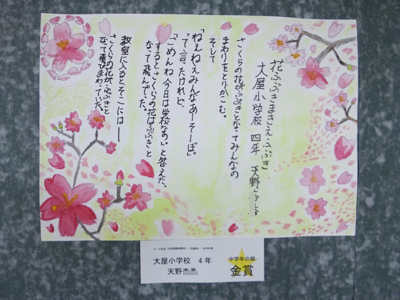 花ふぶきまさえふぶき
大屋小学校 四年 天野
さくらの花がふぶきとなってみんなの
まわりをとりかこむ。
そして
「ねえねえみんなあーそーぼ。」
って言ったけれど、
「ごめんね今日は学校なの。」と答えた。
するとさくらの花はふぶきと
なって飛んでった。
教室に入るとそこには――
さくらの花がふぶきと
なって飛びまわっていた。
大屋小学校 4年
天野
中学年の部
金賞